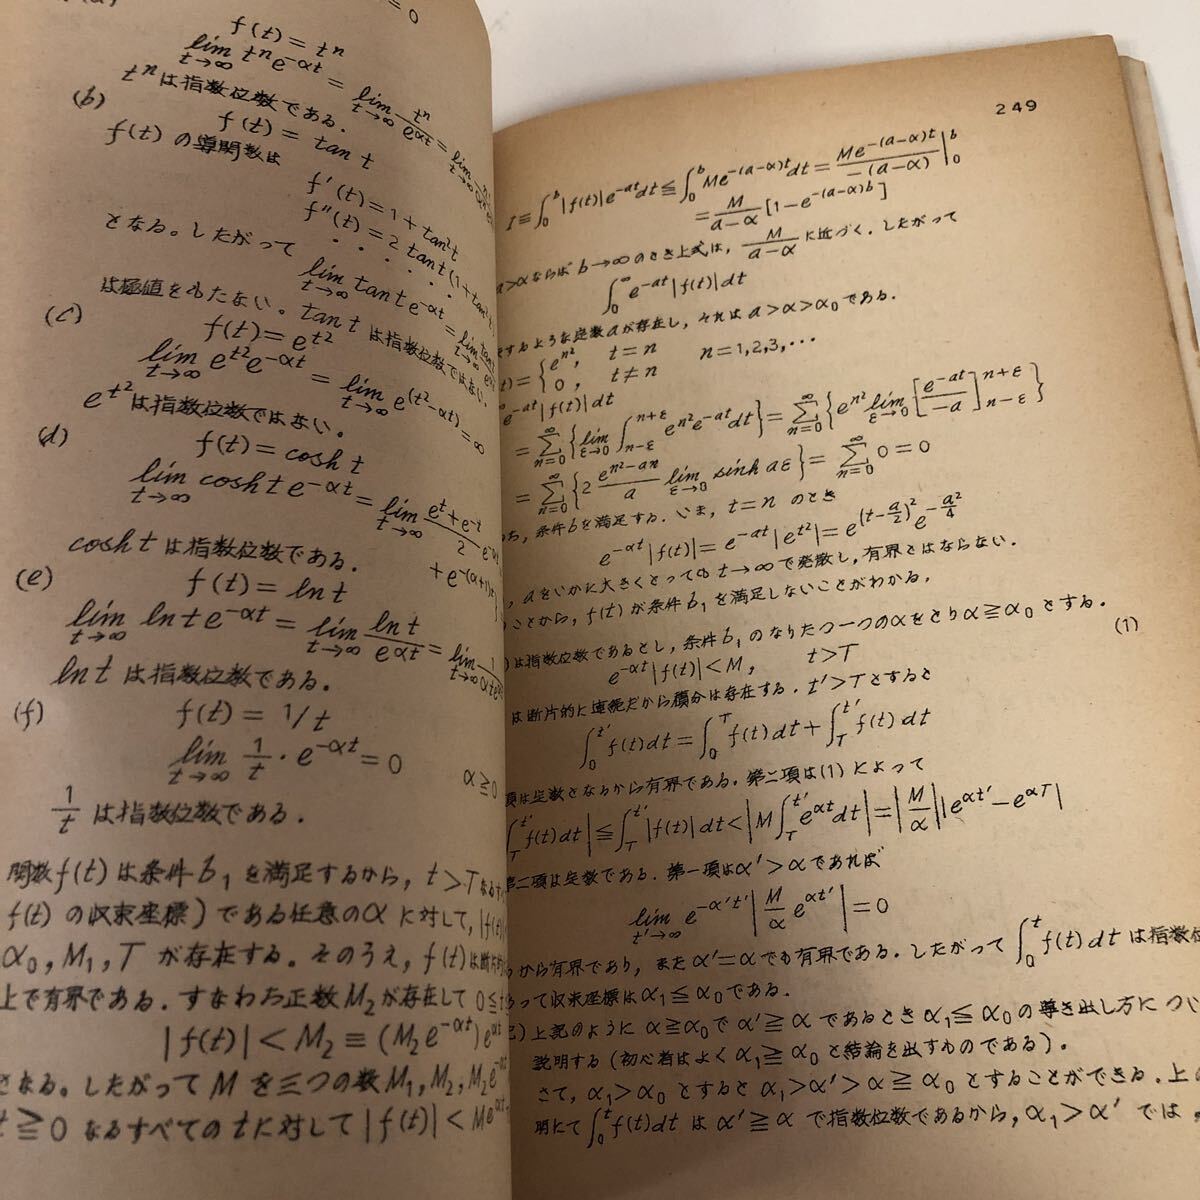 f(t) = tⁿ
lim t→∞ tⁿe^{-αt} = lim t→∞ tⁿ/e^{αt} = lim t→∞
tⁿは指数位数である.
(b) f(t) = tan t
f(t) の導関数は
f'(t) = 1 + tan²t
f''(t) = 2 tan t (1 + tan²t
・ ・ ・ ・ ・ ・
となる。したがって
lim t→∞ tan t e^{-αt} = lim t→∞ tan t
は極値をもたない。tan t は指数位数ではない.
(c) f(t) = e^{t²}
lim t→∞ e^{t²}e^{-αt} = lim t→∞ e^{(t²-αt)} = ∞
e^{t²}は指数位数ではない.
(d) f(t) = cosh t
lim t→∞ cosh t e^{-αt} = lim t→∞ (e^t + e^{-t})/2 e^{-αt}
+ e^{-(α+1)t}}
cosh t は指数位数である.
(e) f(t) = ln t
lim t→∞ ln t e^{-αt} = lim t→∞ ln t/e^{αt} = lim t→∞ 1/αte
ln t は指数位数である.
(f) f(t) = 1/t
lim t→∞ 1/t・e^{-αt} = 0 α≧0
1/t は指数位数である.
関数f(t)は条件b₁を満足するから, t>T なる
f(t) の収束座標) である任意のαに対して, |f(t)
α₀, M₁, T が存在する. そのうえ, f(t)は断片的
上で有界である. すなわち正数M₂が存在して 0≦t
|f(t)| < M₂ ≡ (M₂e^{-αt})e^{αt}
となる. したがって M を三つの数M₁, M₂, M₂e^{-α
t≧0 なるすべてのtに対して |f(t)| < Me^{α
249
I≡∫₀^b|f(t)|e^{-at}dt≦∫₀^b Me^{-(a-α)t}dt = Me^{-(a-α)t}/-(a-α)|₀^b
= M/(a-α) [1-e^{-(a-α)b}]
a>αならば b→∞のとき上式は, M/(a-α) に近づく. したがって
∫₀^∞ e^{-at}|f(t)|dt
するような定数aが存在し, それは a>α>α₀である.
t) = {e^{n²}, t=n n=1,2,3,…
0, t≠n
e^{-at}|f(t)|dt
= Σ_{n=0}^∞{lim ε→0 ∫_{n-ε}^{n+ε} e^{n²}e^{-at}dt} = Σ_{n=0}^∞{e^{n²} lim ε→0 [e^{-at}/-a]_{n-ε}^{n+ε}}
= Σ_{n=0}^∞{2 e^{n²-an}/a lim ε→0 sinh aε} = Σ_{n=0}^∞ 0 = 0
ち, 条件bを満足する. いま, t=n のとき
e^{-αt}|f(t)| = e^{-at}|e^{t²}| = e^{(t-a/2)²}e^{-a²/4}
, aをいかに大きくとっても t→∞で発散し, 有界とはならない.
ことから, f(t) が条件b₁を満足しないことがわかる.
)は指数位数であるとし, 条件b₁のなりたつ一つのαをとりα≧α₀とする.
e^{-αt}|f(t)|<M, t>T (1)
は断片的に連続だから積分は存在する. t'>Tとすると
∫₀^{t'}f(t)dt = ∫₀^T f(t)dt + ∫_T^{t'}f(t)dt
項は定数となるから有界である. 第二項は(1)によって
∫_T^{t'}f(t)dt|≦∫_T^{t'}|f(t)|dt<|M∫_T^{t'}e^{αt}dt|=|M/α||e^{αt'}-e^{αT}|
第二項は定数である. 第一項はα'>αであれば
lim t'→∞ e^{-α't'}|M/α e^{αt'}| = 0
から有界であり, またα'=αでも有界である. したがって ∫₀^t f(t)dtは指数位
って収束座標はα₁≦α₀である.
)上記のようにα≧α₀で α'≧α であるとき α₁≦α₀の導き出し方につい
説明する (初心者はよく α₁≧α₀ と結論を出すものである).
さて, α₁>α₀ とすると α₁>α'>α≧α₀ とすることができる. 上の
明にて ∫₀^t f(t)dt は α'≧α で指数位数であるから, α₁>α' では